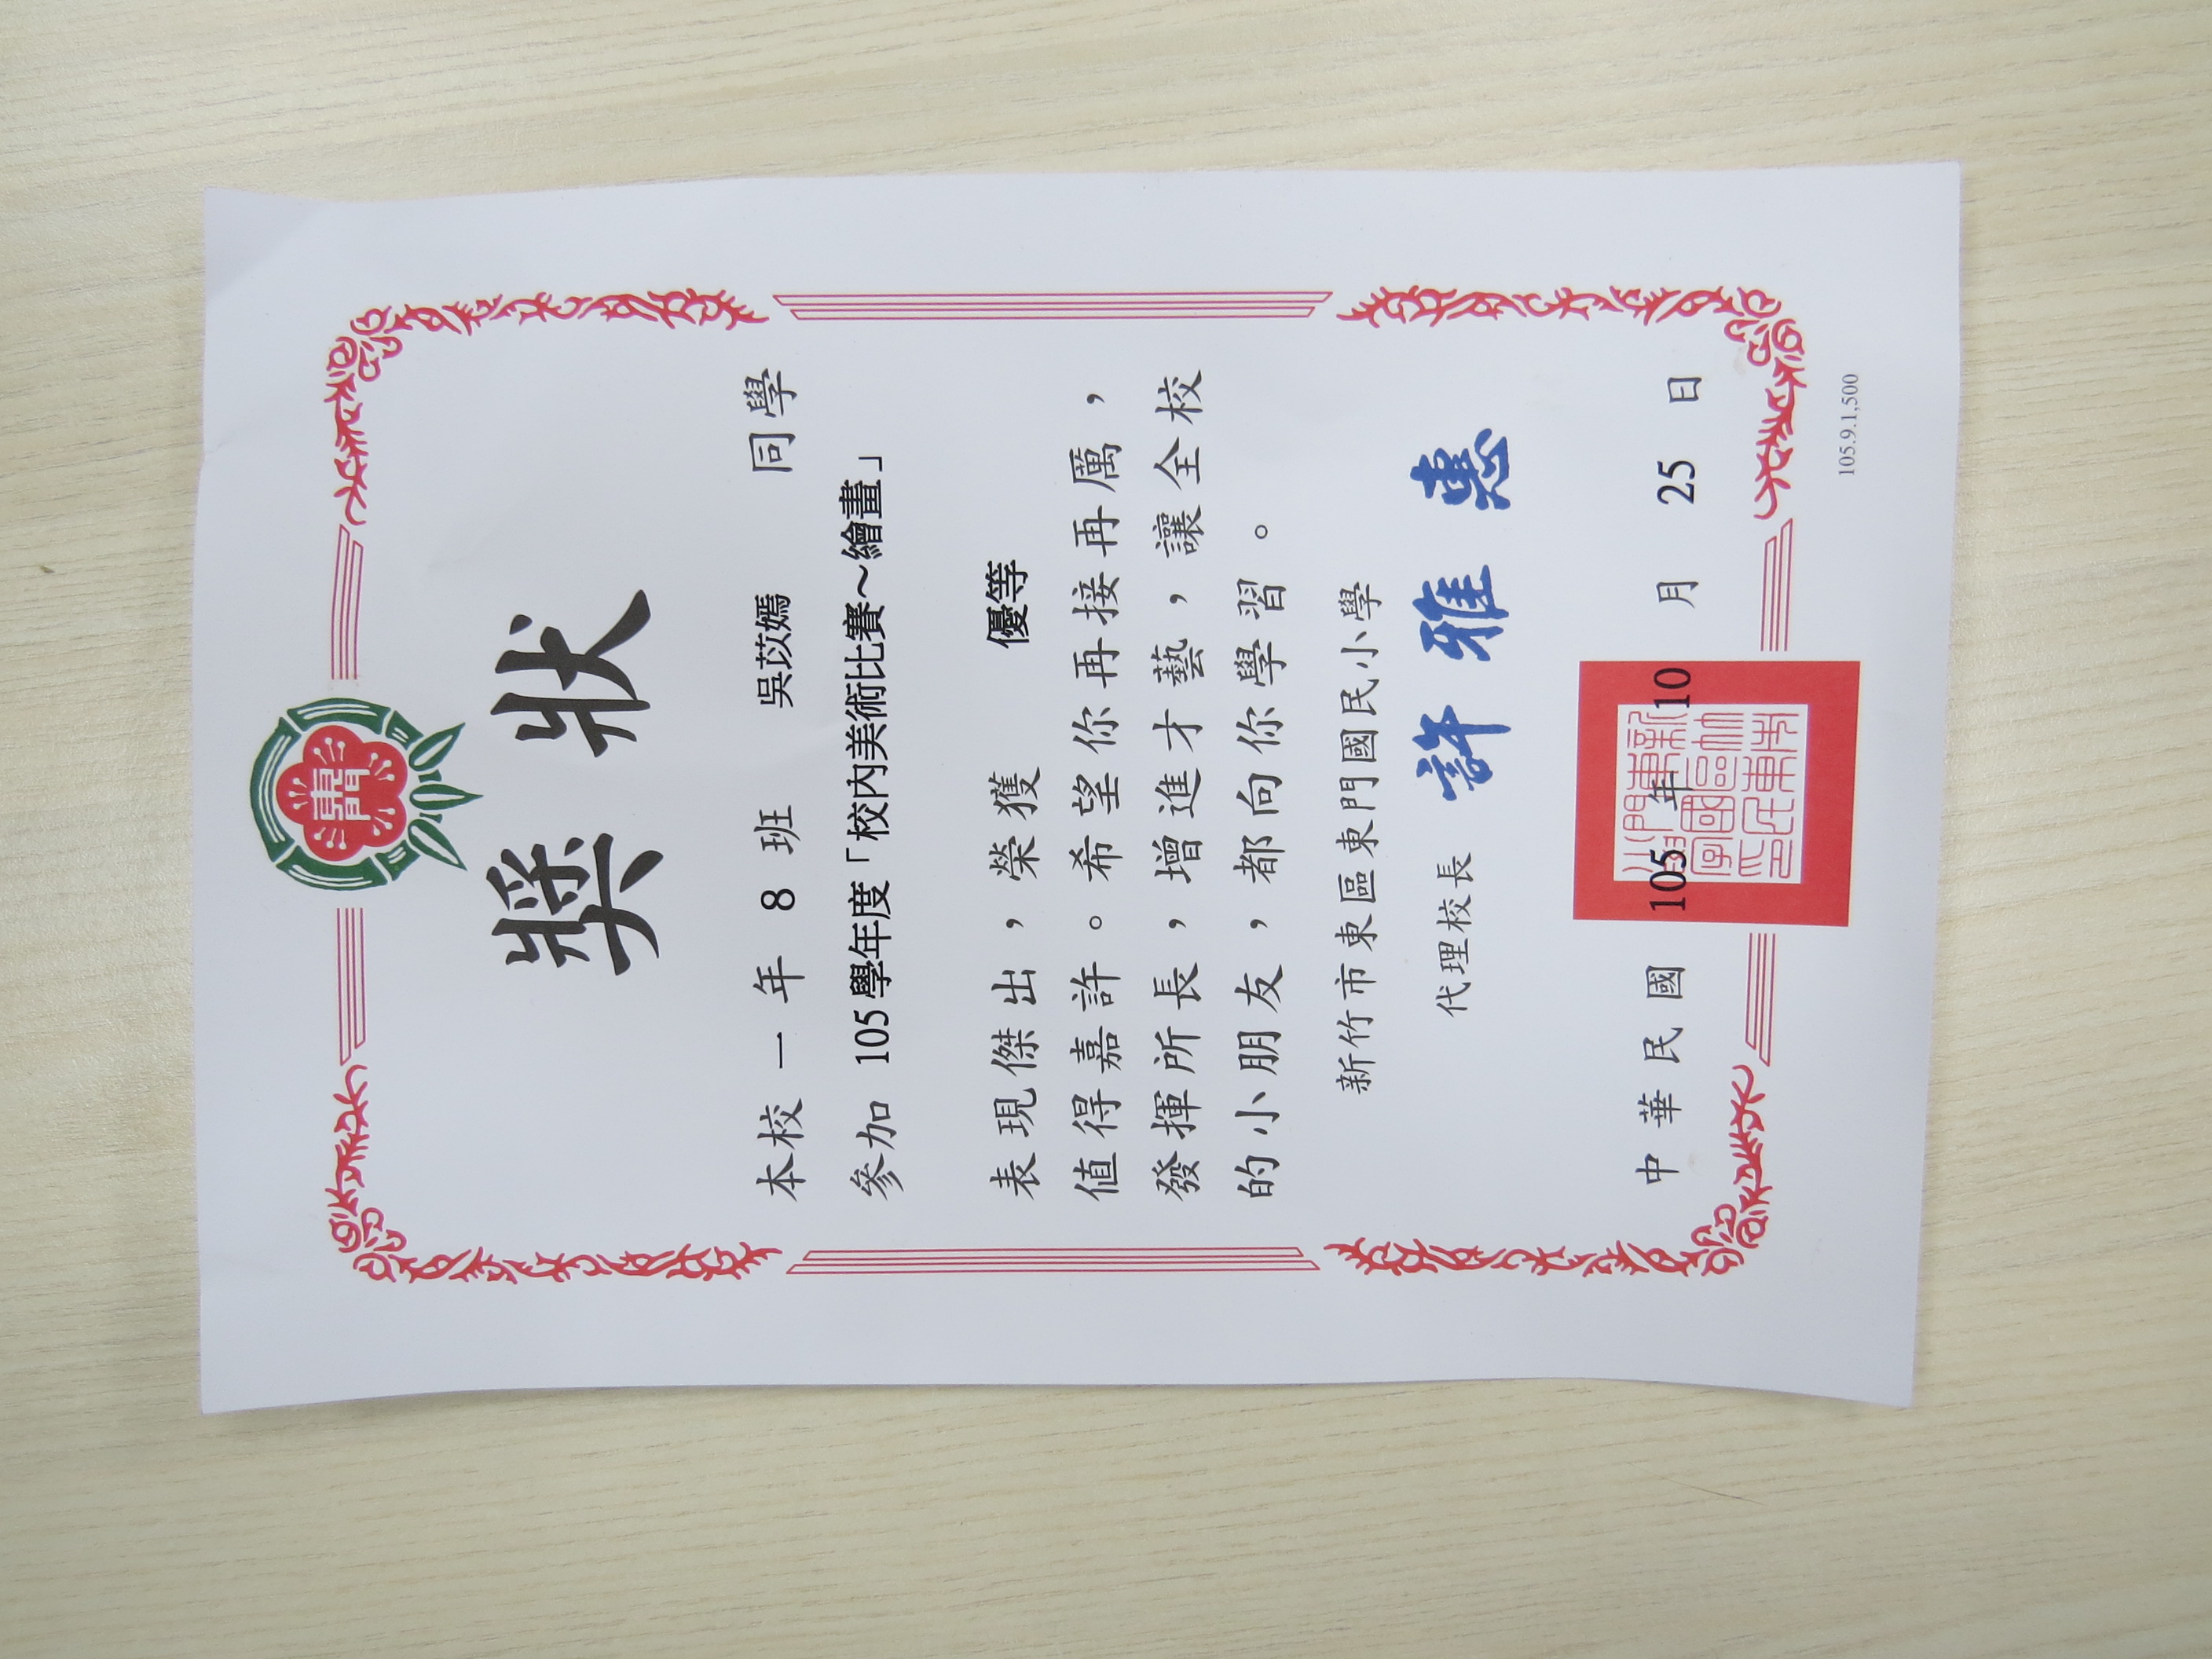 東門
獎狀
本校一年 8 班 吳苡嫣 同學
參加 105 學年度「校內美術比賽～繪畫」
優等
表現傑出，榮獲
值得嘉許。希望你再接再厲，
發揮所長，增進才藝，讓全校
的小朋友，都向你學習。
新竹市東區東門國民小學
代理校長 許雅惠
中華民國 105 年 10 月 25 日
105.9.1,500